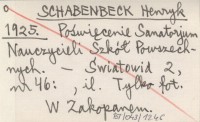 SCHABENBECK Henryk
1925. Poświęcenie Sanatorjum
Nauczycieli Szkół Powszech-
nych. - Światowid 2,
nr 46: , il. Tylko fot.
W Zakopanem.